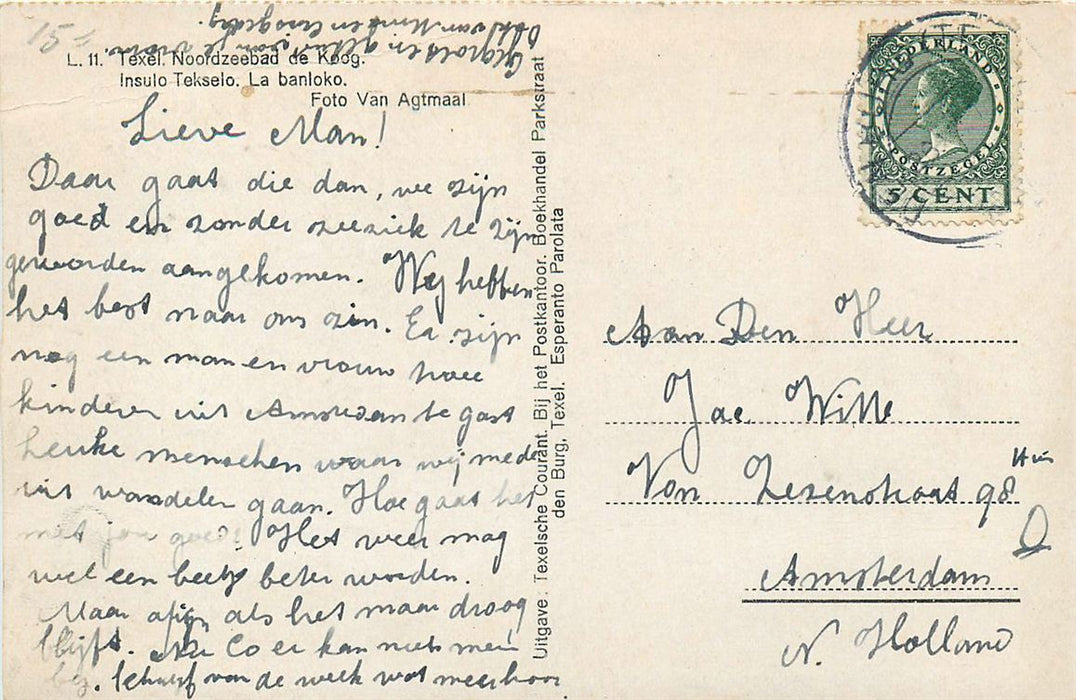 15=
L. 11. Texel. Noordzeebad de Koog.
Insulo Tekselo. La banloko.
Foto Van Agtmaal
Lieve Man!
Daar gaat die dan, we zijn
goed en zonder zeeziek te zijn
geworden aangekomen. Wij hebben
het best naar ons zin. Er zijn
nog een man en vrouw twee
kinderen uit Amsterdam te gast
leuke menschen waar wij mede
uit wandelen gaan. Hoe gaat het
met jou goed? Het weer mag
wel een beetje beter worden.
Maar afijn als het maar droog
blijft. Nu Co er kan niets meer
bij. schrijf van de week wat meer hoor
Gegroet en van je vrouw
van en
Uitgave: Texelsche Courant. Bij het Postkantoor. Boekhandel Parkstraat
den Burg, Texel. Esperanto Parolata
NEDERLAND
POSTZEGEL
5 CENT
Aan Den Heer
Jac. Wille
Von Zesenstraat 98 Huis
Amsterdam
O
N. Holland